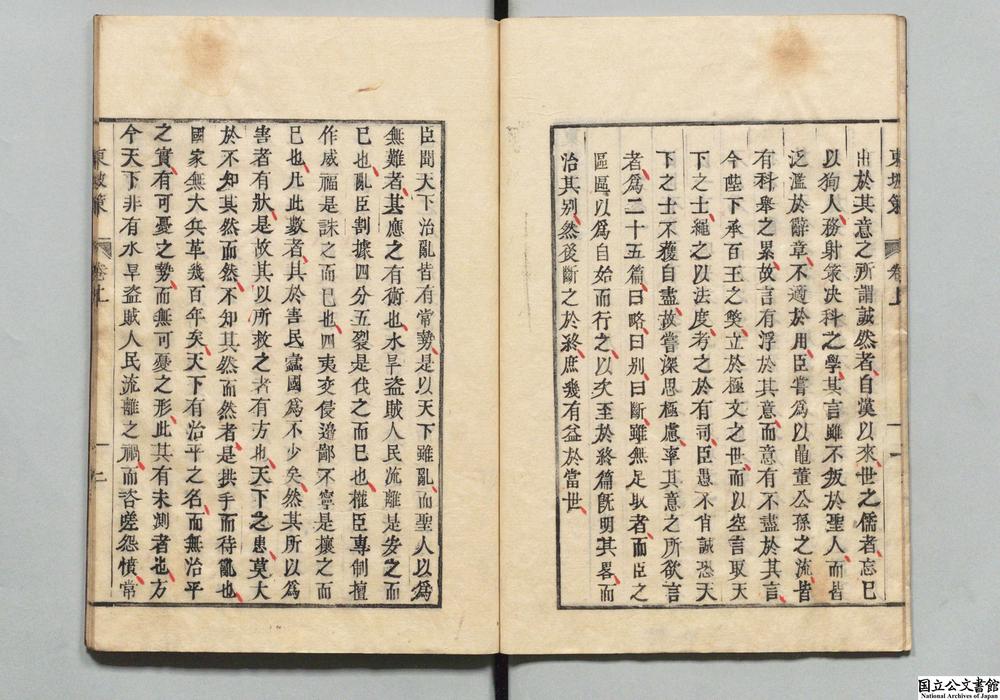 東坡策
卷上
一
出於其意之所謂誠然者自漢以來世之儒者忘已
以狥人務射策决科之學其言雖不叛於聖人而皆
泛濫於辭章不適於用臣嘗以爲鼂董公孫之流皆
有科舉之累故言有浮於其意而意有不盡於其言
今陛下承百王之弊立於極文之世而以空言取天
下之士繩之以法度考之於有司臣愚不肖誠恐天
下之士不獲自盡故嘗深思極慮率其意之所欲言
者爲二十五篇曰略曰別曰斷雖無足取者而臣之
區區以爲自始而行之以次至於終篇旣明其畧而
治其別然後斷之於終庶幾有益於當世
臣聞天下治亂皆有常勢是以天下雖亂而聖人以爲
無難者其應之有術也水旱盜賊人民流離是安之而
已也亂臣割據四分五裂是伐之而已也權臣專制擅
作威福是誅之而已也四夷交侵邊鄙不寧是攘之而
已也凡此數者其於害民蠧國爲不少矣然其所以爲
害者有狀是故其以所救之者有方也天下之患莫大
於不知其然而然不知其然而然者是拱手而待亂也
國家無大兵革幾百年矣天下有治平之名而無治平
之實有可憂之勢而無可憂之形此其有未測者也方
今天下非有水旱盜賊人民流離之禍而咨嗟怨憤常
東坡策
卷上
二
国立公文書館
National Archives of Japan